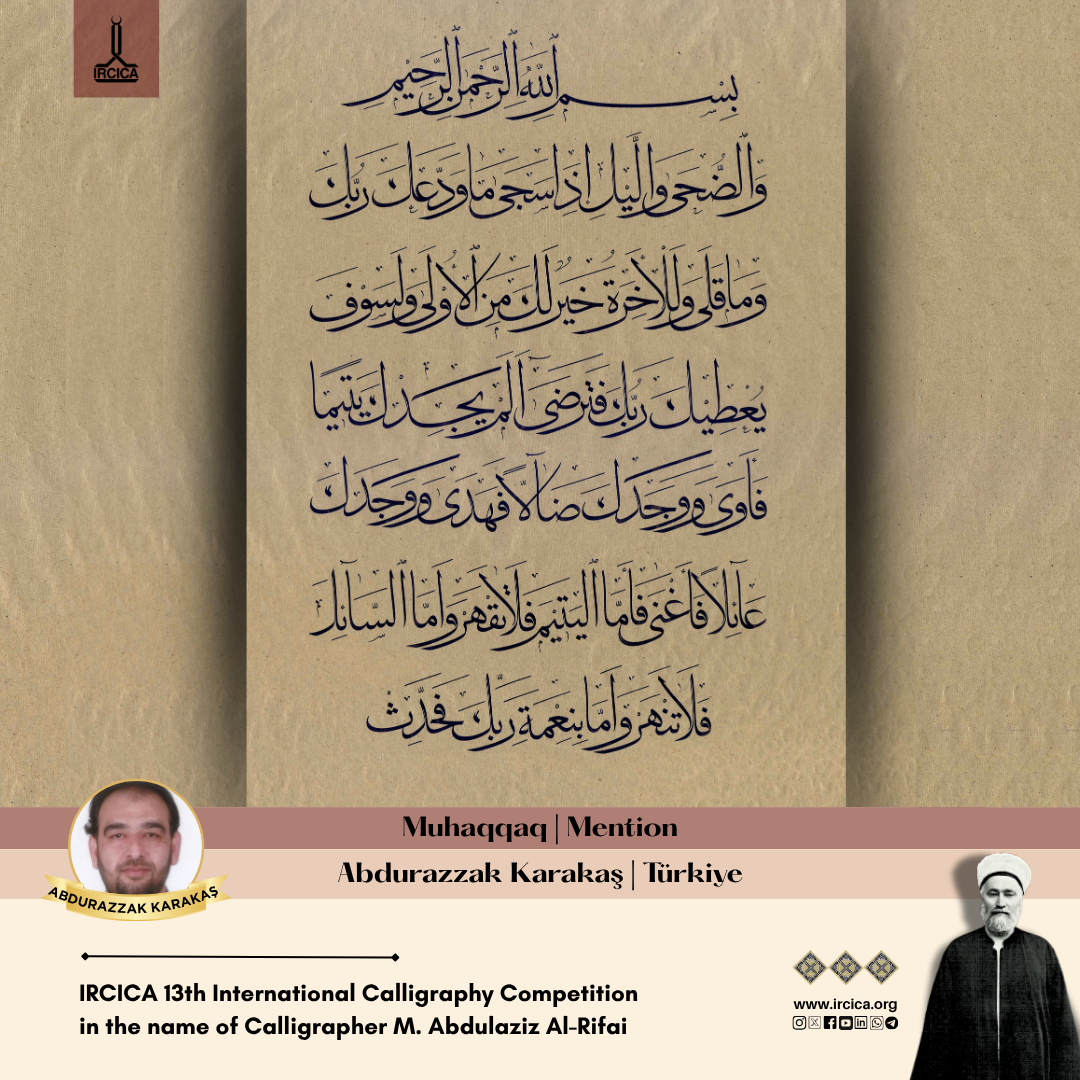 IRCICA
بِسْمِ اللَّهِ الرَّحْمَنِ الرَّحِيمِ
وَالضُّحَى وَاللَّيْلِ اِذَا سَجَى مَا وَدَّعَكَ رَبُّكَ
وَمَا قَلَى وَلَلْاٰخِرَةُ خَيْرٌ لَكَ مِنَ الْاُولَى وَلَسَوْفَ
يُعْطِيكَ رَبُّكَ فَتَرْضَى اَلَمْ يَجِدْكَ يَتِيمًا
فَأَوَى وَوَجَدَكَ ضَآلًّا فَهَدَى وَوَجَدَكَ
عَآئِلًا فَاَغْنَى فَأَمَّا الْيَتِيمَ فَلَا تَقْهَرْ وَاَمَّا السَّآئِلَ
فَلَا تَنْهَرْ وَاَمَّا بِنِعْمَةِ رَبِّكَ فَحَدِّثْ
Muhaqqaq | Mention
Abdurazzak Karakaş | Türkiye
ABDURAZZAK KARAKAŞ
IRCICA 13th International Calligraphy Competition
in the name of Calligrapher M. Abdulaziz Al-Rifai
www.ircica.org